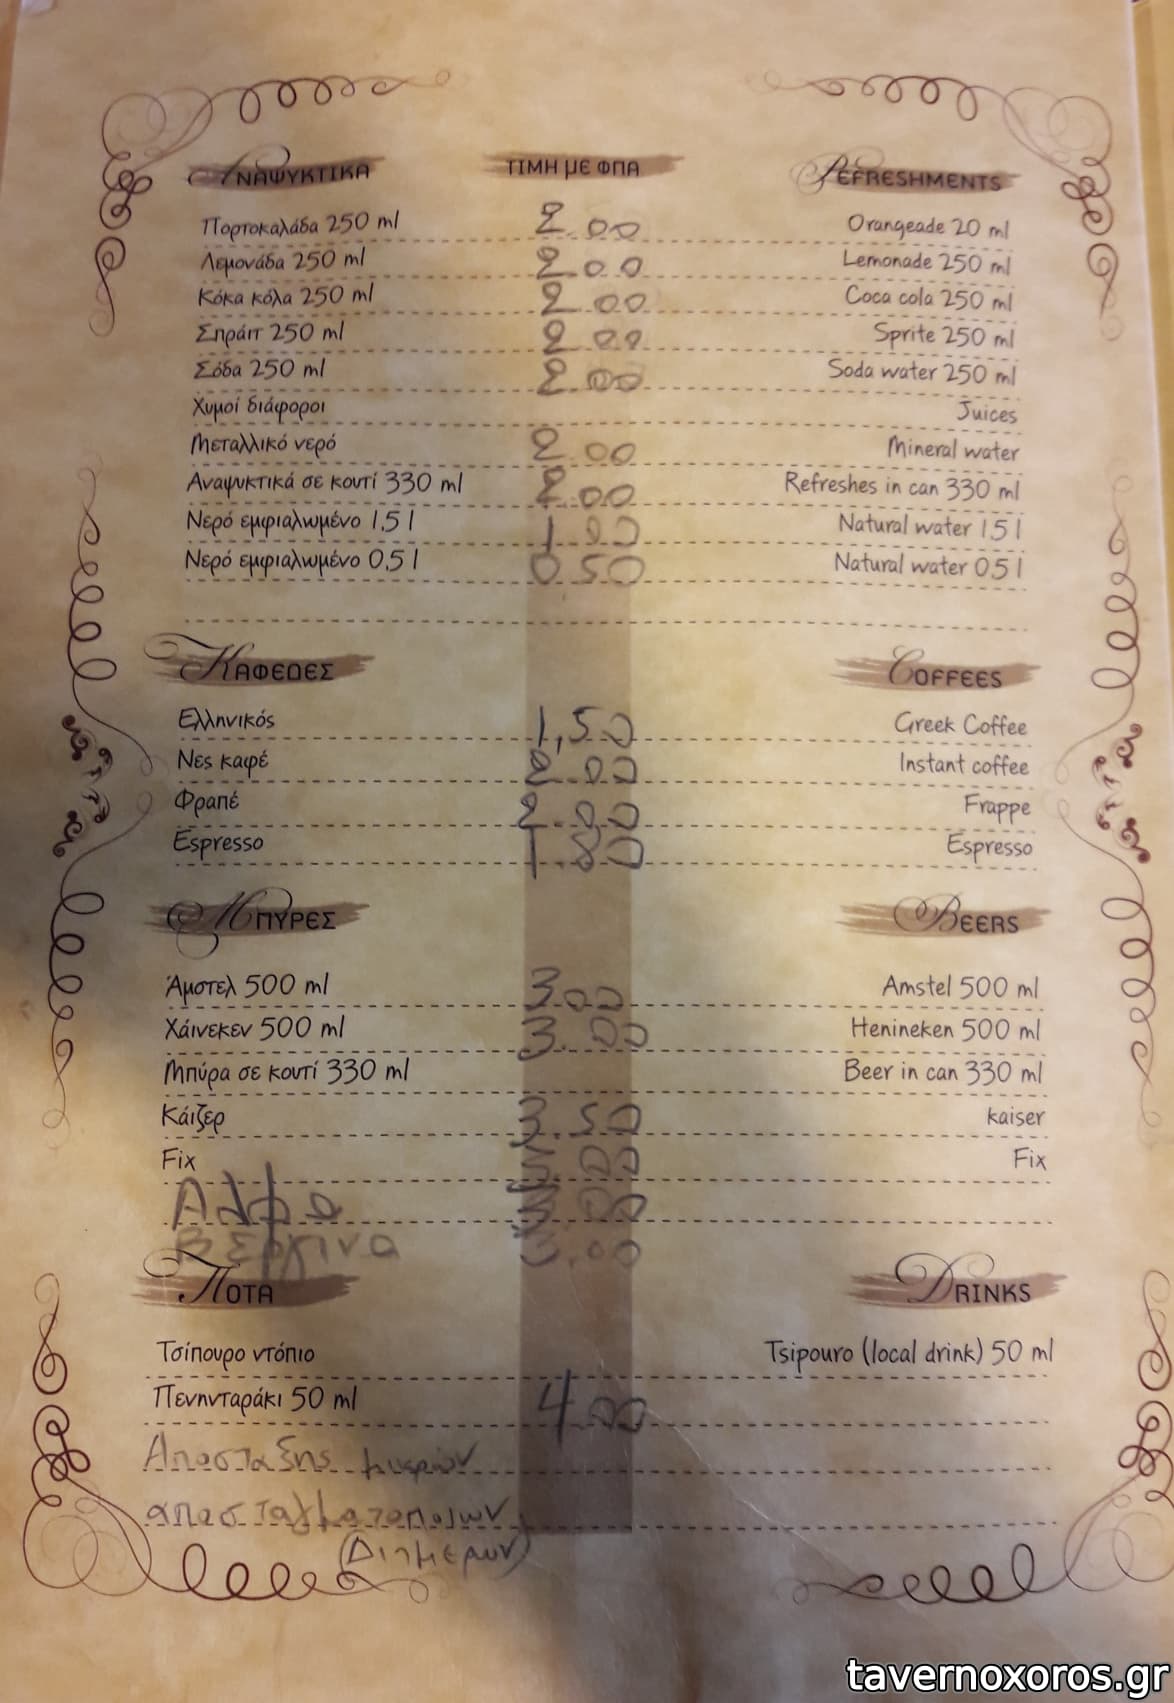 ΑΝΑΨΥΚΤΙΚΑ ΤΙΜΗ ΜΕ ΦΠΑ REFRESHMENTS
Πορτοκαλάδα 250 ml 2.00 Orangeade 20 ml
Λεμονάδα 250 ml 2.00 Lemonade 250 ml
Κόκα κόλα 250 ml 2.00 Coca cola 250 ml
Σπράιτ 250 ml 2.00 Sprite 250 ml
Σόδα 250 ml 2.00 Soda water 250 ml
Χυμοί διάφοροι Juices
Μεταλλικό νερό 2.00 Mineral water
Αναψυκτικά σε κουτί 330 ml 2.00 Refreshes in can 330 ml
Νερό εμφιαλωμένο 1,5 l 1.00 Natural water 1,5 l
Νερό εμφιαλωμένο 0,5 l 0.50 Natural water 0,5 l
ΚΑΦΕΔΕΣ COFFEES
Ελληνικός 1,50 Greek Coffee
Νες καφέ 2.00 Instant coffee
Φραπέ 2.00 Frappe
Espresso 1.80 Espresso
ΜΠΥΡΕΣ BEERS
Άμστελ 500 ml 3.00 Amstel 500 ml
Χάινεκεν 500 ml 3.00 Henineken 500 ml
Μπύρα σε κουτί 330 ml Beer in can 330 ml
Κάιζερ 3.50 kaiser
Fix 3.00 Fix
Αλφα 3.00
Βεργινα 3.00
ΠΟΤΑ DRINKS
Τσίπουρο ντόπιο Tsipouro (local drink) 50 ml
Πενηνταράκι 50 ml 4.00
Αποσταξης μικρών
αποσταγματοποιων
(Διημερων)
tavernoxoros.gr